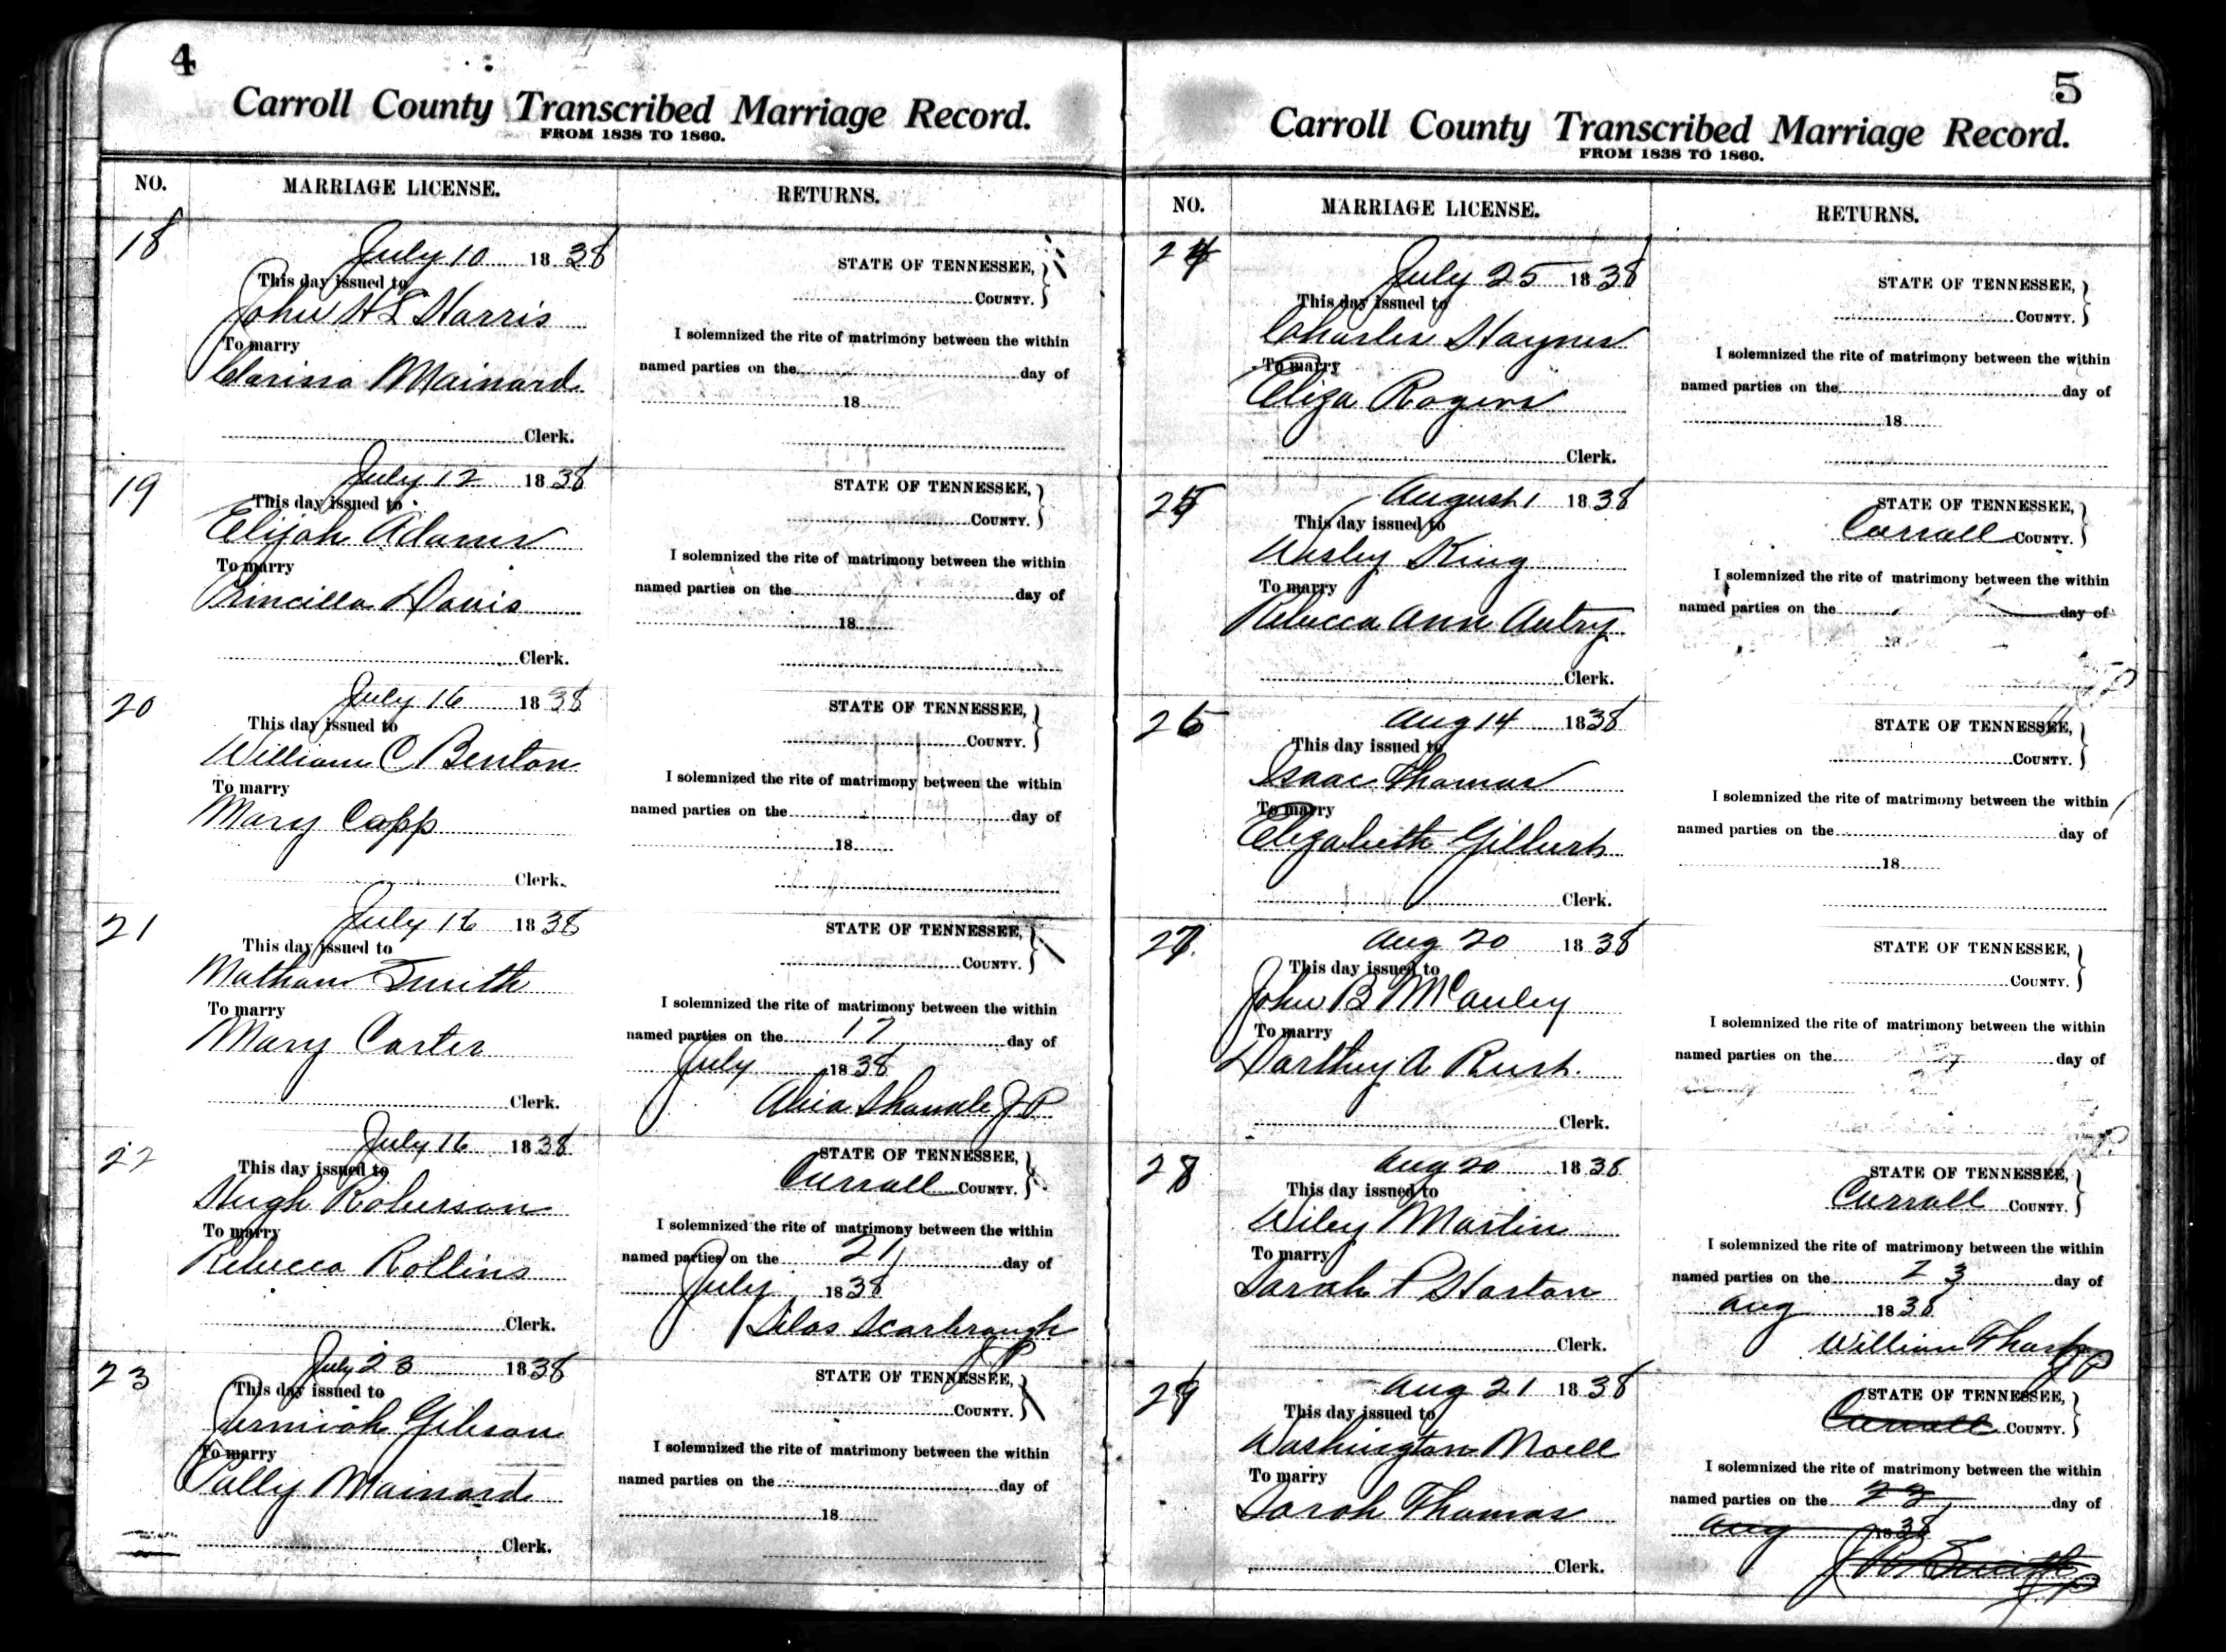 4
Carroll County Transcribed Marriage Record.
FROM 1838 TO 1860.
NO. MARRIAGE LICENSE. RETURNS.
18
July 10 1838
This day issued to
John H L Harris
To marry
Clarissa Mainard
Clerk.
STATE OF TENNESSEE,
COUNTY.
I solemnized the rite of matrimony between the within
named parties on the day of
18
19
July 12 1838
This day issued to
Elijah Adams
To marry
Princilla Davis
Clerk.
STATE OF TENNESSEE,
COUNTY.
I solemnized the rite of matrimony between the within
named parties on the day of
18
20
July 16 1838
This day issued to
William C Benton
To marry
Mary Capp
Clerk.
STATE OF TENNESSEE,
COUNTY.
I solemnized the rite of matrimony between the within
named parties on the day of
18
21
July 16 1838
This day issued to
Mathan Smith
To marry
Mary Carter
Clerk.
STATE OF TENNESSEE,
COUNTY.
I solemnized the rite of matrimony between the within
named parties on the 17 day of
July 1838
J P
22
July 16 1838
This day issued to
Hugh Roberson
To marry
Rebecca Rollins
Clerk.
STATE OF TENNESSEE,
Carroll COUNTY.
I solemnized the rite of matrimony between the within
named parties on the 21 day of
July 1838
Silas Scarbrough
J P
23
July 23 1838
This day issued to
Jermiah Gibson
To marry
Pally Mainard
Clerk.
STATE OF TENNESSEE,
COUNTY.
I solemnized the rite of matrimony between the within
named parties on the day of
18
5
Carroll County Transcribed Marriage Record.
FROM 1838 TO 1860.
NO. MARRIAGE LICENSE. RETURNS.
24
July 25 1838
This day issued to
Charles Haynes
To marry
Eliza Rogers
Clerk.
STATE OF TENNESSEE,
COUNTY.
I solemnized the rite of matrimony between the within
named parties on the day of
18
25
August 1 1838
This day issued to
Wesley King
To marry
Rebecca Ann Autry
Clerk.
STATE OF TENNESSEE,
Carroll COUNTY.
I solemnized the rite of matrimony between the within
named parties on the day of
18
26
Aug 14 1838
This day issued to
Isaac Thomas
To marry
Elizabeth Gilbert
Clerk.
STATE OF TENNESSEE,
COUNTY.
I solemnized the rite of matrimony between the within
named parties on the day of
18
27
Aug 20 1838
This day issued to
John B McCauley
To marry
Darthey A Rust
Clerk.
STATE OF TENNESSEE,
COUNTY.
I solemnized the rite of matrimony between the within
named parties on the day of
28
Aug 20 1838
This day issued to
Wiley Martin
To marry
Sarah P Horton
Clerk.
STATE OF TENNESSEE,
Carroll COUNTY.
I solemnized the rite of matrimony between the within
named parties on the 23 day of
Aug 1838
William Tharp JP
29
Aug 21 1838
This day issued to
Washington Noell
To marry
Sarah Thomas
Clerk.
STATE OF TENNESSEE,
Carroll COUNTY.
I solemnized the rite of matrimony between the within
named parties on the 23 day of
Aug 1838
Smith
JP